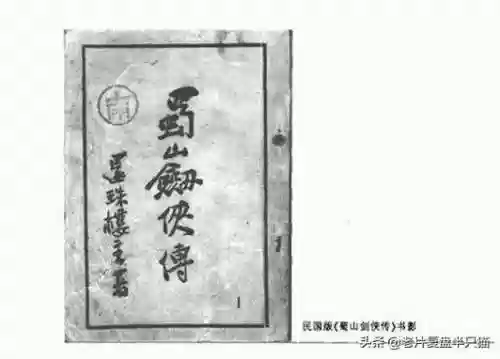 蜀山劔俠傳
還珠樓主著
1
民国版《蜀山剑侠传》书影
头条@老片复盘半只猫